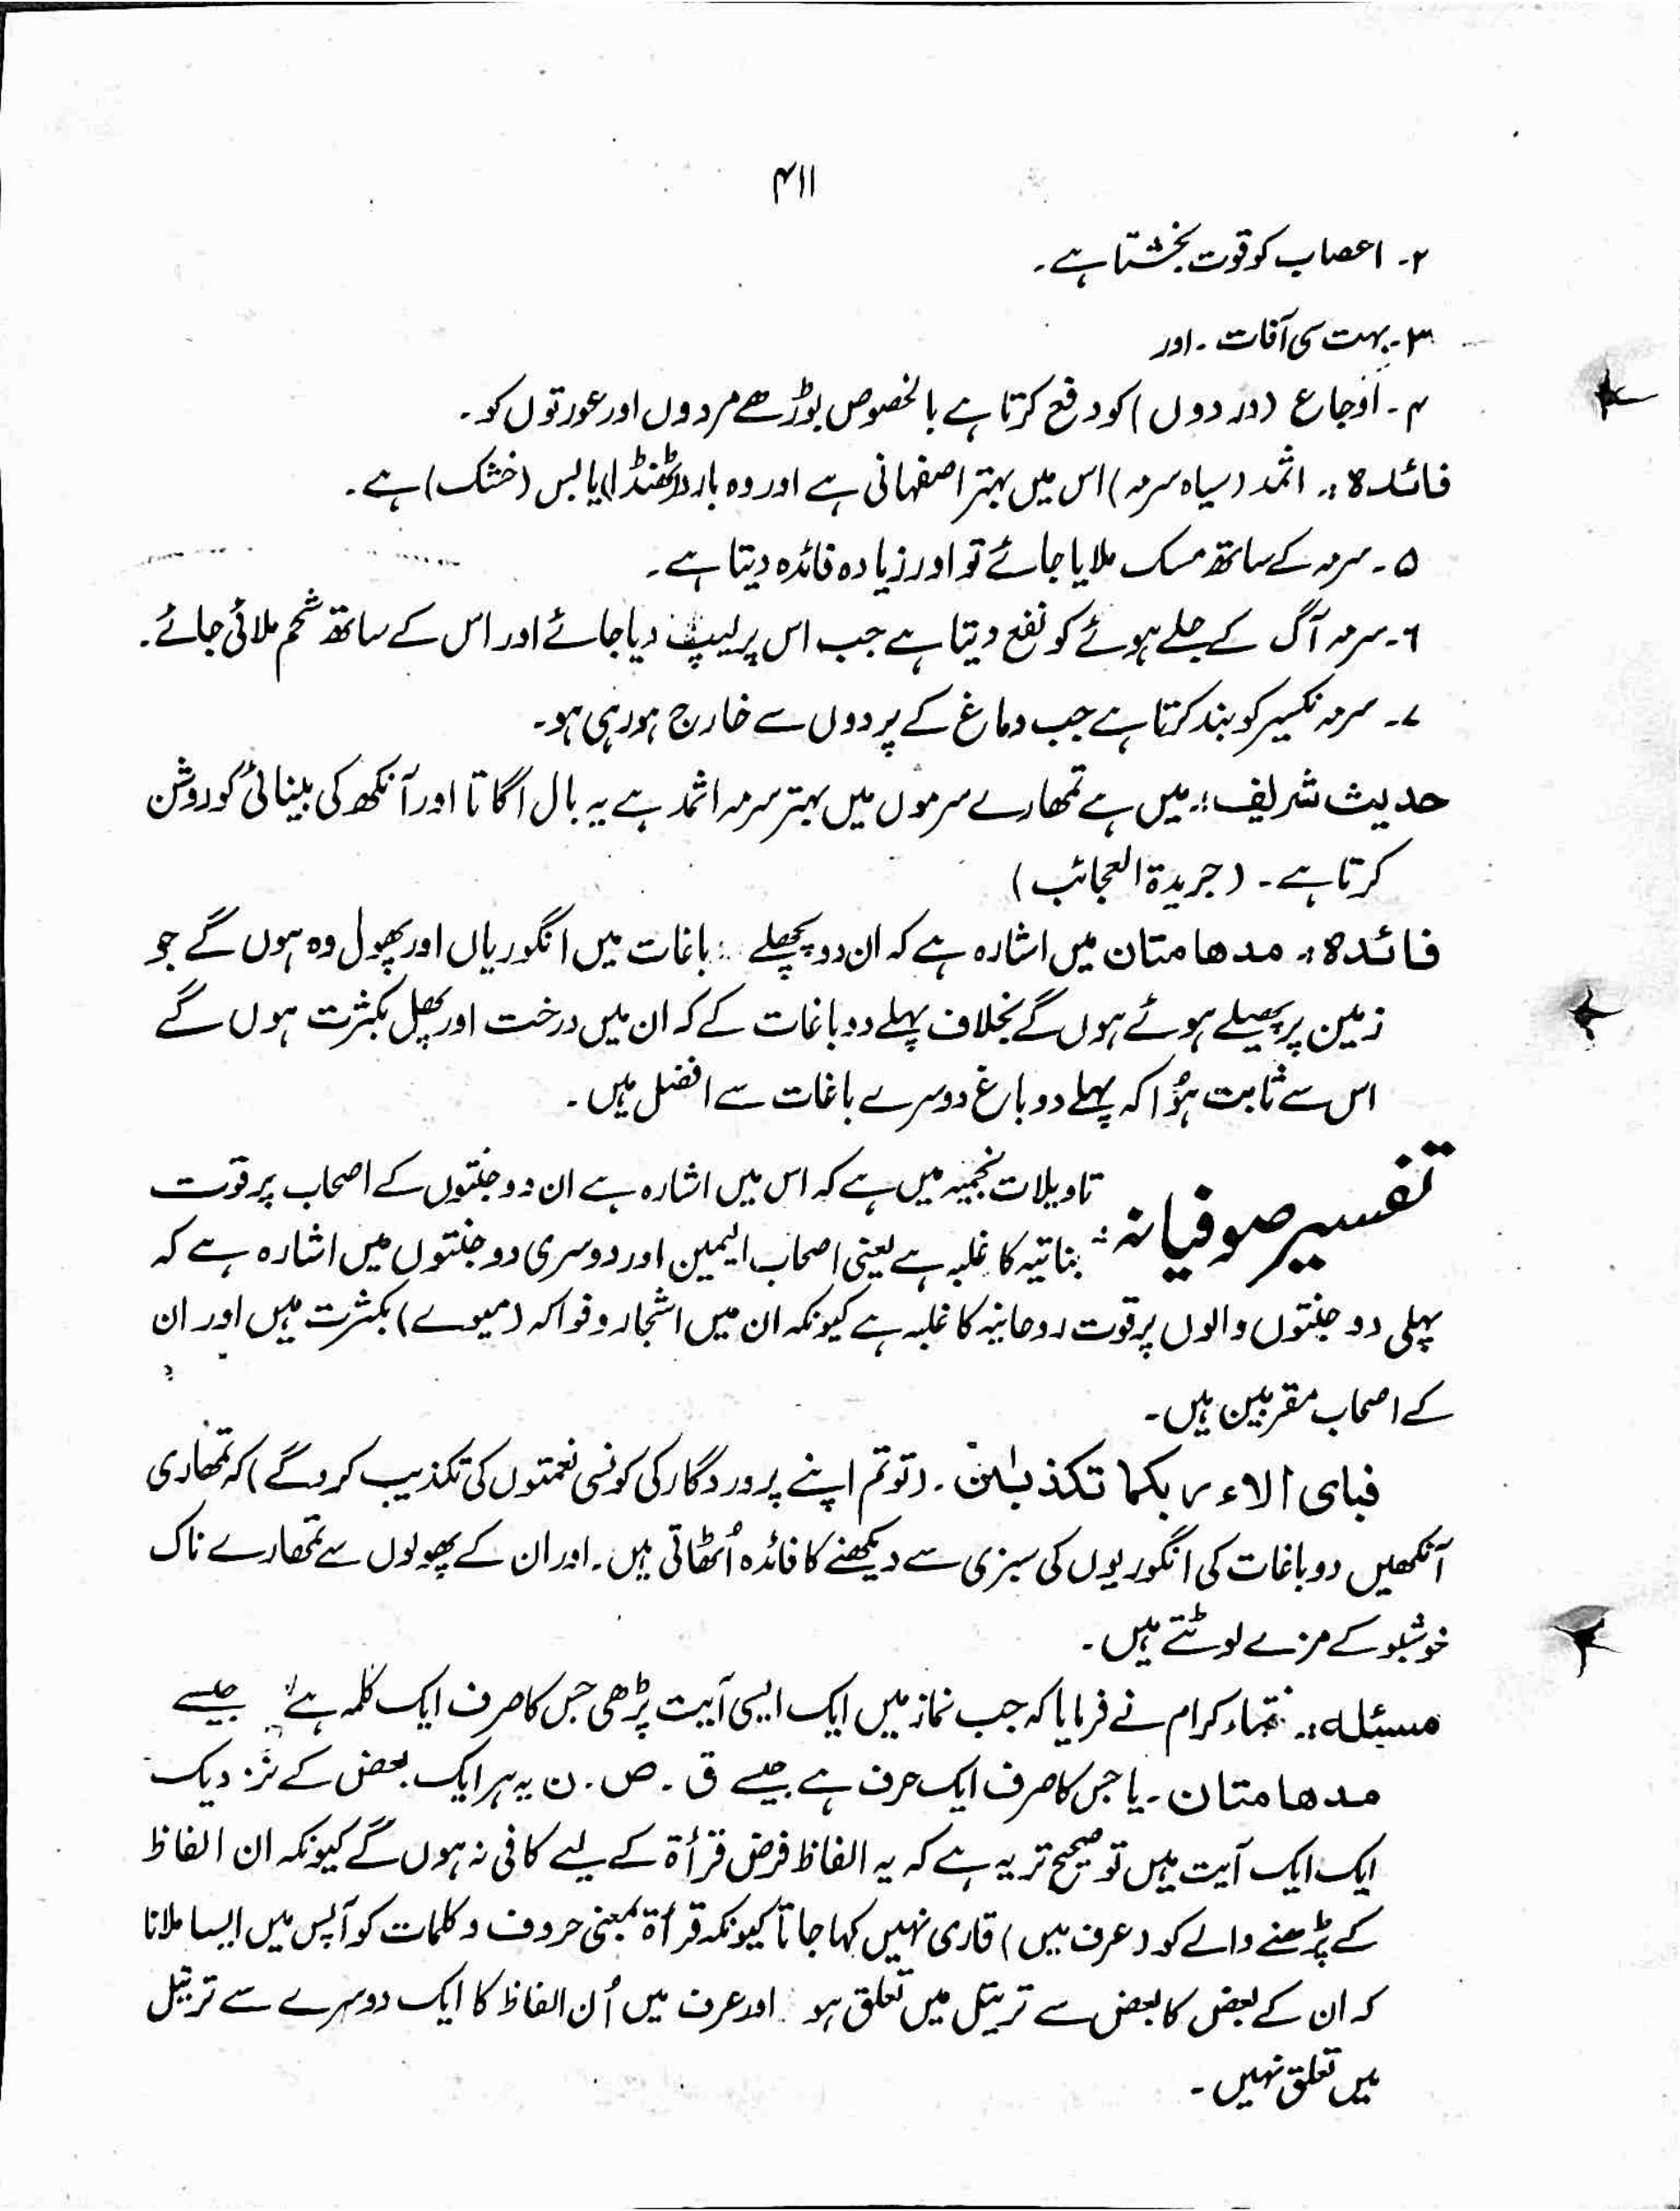 ۴۱۱
۲۔ اعصاب کو قوت بخشتا ہے۔
۳۔ بہت سی آفات۔ اور
۴۔ اَوجاع (دردوں) کو دفع کرتا ہے بالخصوص بوڑھے مردوں اور عورتوں کو۔
فائدہ:۔ اثمد (سیاہ سرمہ) اس میں بہتر اصفہانی ہے اور وہ بارد (ٹھنڈا) یابس (خشک) ہے۔
۵۔ سرمہ کے ساتھ مسک ملایا جائے تو اور زیادہ فائدہ دیتا ہے۔
۶۔ سرمہ آگ کے جلے ہوئے کو نفع دیتا ہے جب اس پر لیپ دیا جائے اور اس کے ساتھ شحم ملائی جائے۔
۷۔ سرمہ نکسیر کو بند کرتا ہے جب دماغ کے پردوں سے خارج ہو رہی ہو۔
حدیث شریف:۔ میں ہے تمھارے سرموں میں بہتر سرمہ اثمد ہے یہ بال اگاتا اور آنکھ کی بینائی کو روشن
کرتا ہے۔ (جریدۃ العجائب)
فائدہ:۔ مدھامتان میں اشارہ ہے کہ ان دو پچھلے باغات میں انگوریاں اور پھول وہ ہوں گے جو
زمین پر پھیلے ہوئے ہوں گے بخلاف پہلے دو باغات کے کہ ان میں درخت اور پھل بکثرت ہوں گے
اس سے ثابت ہُوا کہ پہلے دو باغ دوسرے باغات سے افضل ہیں۔
تفسیر صوفیانہ: تاویلات نجمیہ میں ہے کہ اس میں اشارہ ہے ان دو جنتوں کے اصحاب پر قوت
بناتیہ کا غلبہ ہے یعنی اصحاب الیمین اور دوسری دو جنتوں میں اشارہ ہے کہ
پہلی دو جنتوں والوں پر قوت روحانیہ کا غلبہ ہے کیونکہ ان میں اشجار و فواکہ (میوے) بکثرت ہیں اور ان
کے اصحاب مقربین ہیں۔
فبای الاء ربکما تکذبٰن۔ (تو تم اپنے پروردگار کی کونسی نعمتوں کی تکذیب کرو گے) کہ تمھاری
آنکھیں دو باغات کی انگوریوں کی سبزی سے دیکھنے کا فائدہ اُٹھاتی ہیں۔ اور ان کے پھولوں سے تمھارے ناک
خوشبو کے مزے لوٹتے ہیں۔
مسئلہ:۔ فقہاء کرام نے فرمایا کہ جب نماز میں ایک ایسی آیت پڑھی جس کا صرف ایک کلمہ ہے جیسے
مدھامتان۔ یا جس کا صرف ایک حرف ہے جیسے ق۔ ص۔ ن یہ ہر ایک بعض کے نزدیک
ایک ایک آیت ہیں تو صحیح تر یہ ہے کہ یہ الفاظ فرض قرأۃ کے لیے کافی نہ ہوں گے کیونکہ ان الفاظ
کے پڑھنے والے کو (عرف میں) قاری نہیں کہا جاتا کیونکہ قرأۃ بمعنی حروف و کلمات کو آپس میں ایسا ملانا
کہ ان کے بعض کا بعض سے ترتیل میں تعلق ہو اور عرف میں اُن الفاظ کا ایک دوسرے سے ترتیل
میں تعلق نہیں۔